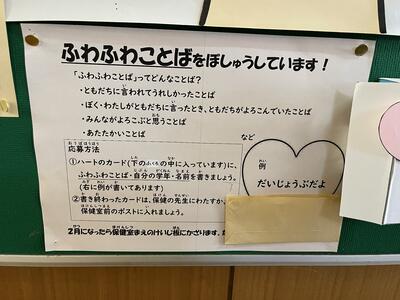 ふわふわことばをぼしゅうしています！
「ふわふわことば」ってどんなことば？
・ともだちに言われてうれしかったことば
・ぼく・わたしがともだちに言ったとき、ともだちがよろこんでいたことば
・みんながよろこぶと思うことば
・あたたかいことば
など
応募方法
①ハートのカード(下のふくろの中に入っています)に、
ふわふわことば・自分の学年・名前を書きましょう。
(右に例が書いてあります)
②書き終わったカードは、保健の先生にわたすか、
保健室前のポストに入れましょう。
例
だいじょうぶだよ
2月になったら保健室まえのけいじ板にかざります。